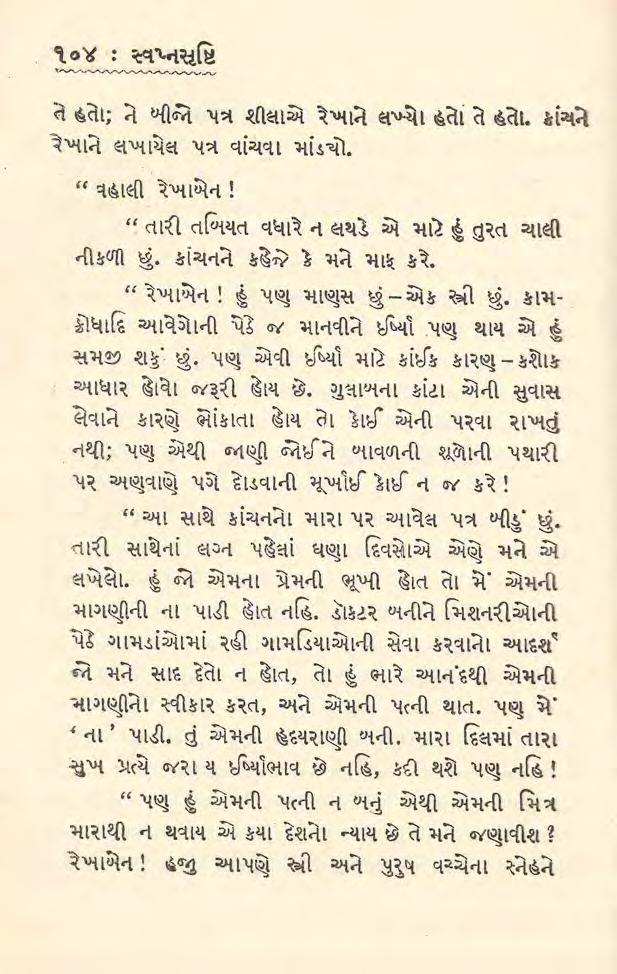 ૧૦૪ : સ્વપ્નસૃષ્ટિ
તે હતો; ને બીજો પત્ર શીલાએ રેખાને લખ્યો હતો તે હતો. કાંચને
રેખાને લખાયેલ પત્ર વાંચવા માંડચો.
“ વહાલી રેખાબેન !
“ તારી તબિયત વધારે ન લથડે એ માટે હું તુરત ચાલી
નીકળી છું. કાંચનને કહેજે કે મને માફ કરે.
“ રેખાબેન ! હું પણ માણસ છું – એક સ્ત્રી છું. કામ-
ક્રોધાદિ આવેગોની પેઠે જ માનવીને ઈર્ષ્યા પણ થાય એ હું
સમજી શકું છું. પણ એવી ઈર્ષ્યા માટે કાંઈક કારણ – કશોક
આધાર હોવો જરૂરી હોય છે. ગુલાબના કાંટા એની સુવાસ
લેવાને કારણે ભોંકાતા હોય તો કોઈ એની પરવા રાખતું
નથી; પણ એથી જાણી જોઈને બાવળની શૂળોની પથારી
પર અણવાણે પગે દોડવાની મૂર્ખાઈ કોઈ ન જ કરે !
“ આ સાથે કાંચનનો મારા પર આવેલ પત્ર બીડું છું.
તારી સાથેનાં લગ્ન પહેલાં ઘણા દિવસોએ એણે મને એ
લખેલો. હું જો એમના પ્રેમની ભૂખી હોત તો મેં એમની
માગણીની ના પાડી હોત નહિ. ડૉક્ટર બનીને મિશનરીઓની
પેઠે ગામડાંઓમાં રહી ગામડિયાઓની સેવા કરવાનો આદર્શ
જો મને સાદ દેતો ન હોત, તો હું ભારે આનંદથી એમની
માગણીનો સ્વીકાર કરત, અને એમની પત્ની થાત. પણ મેં
‘ ના ’ પાડી. તું એમની હૃદયરાણી બની. મારા દિલમાં તારા
સુખ પ્રત્યે જરા ય ઈર્ષ્યાભાવ છે નહિ, કદી થશે પણ નહિ !
“ પણ હું એમની પત્ની ન બનું એથી એમની મિત્ર
મારાથી ન થવાય એ કયા દેશનો ન્યાય છે તે મને જણાવીશ ?
રેખાબેન ! હજુ આપણે સ્ત્રી અને પુરુષ વચ્ચેના સ્નેહને